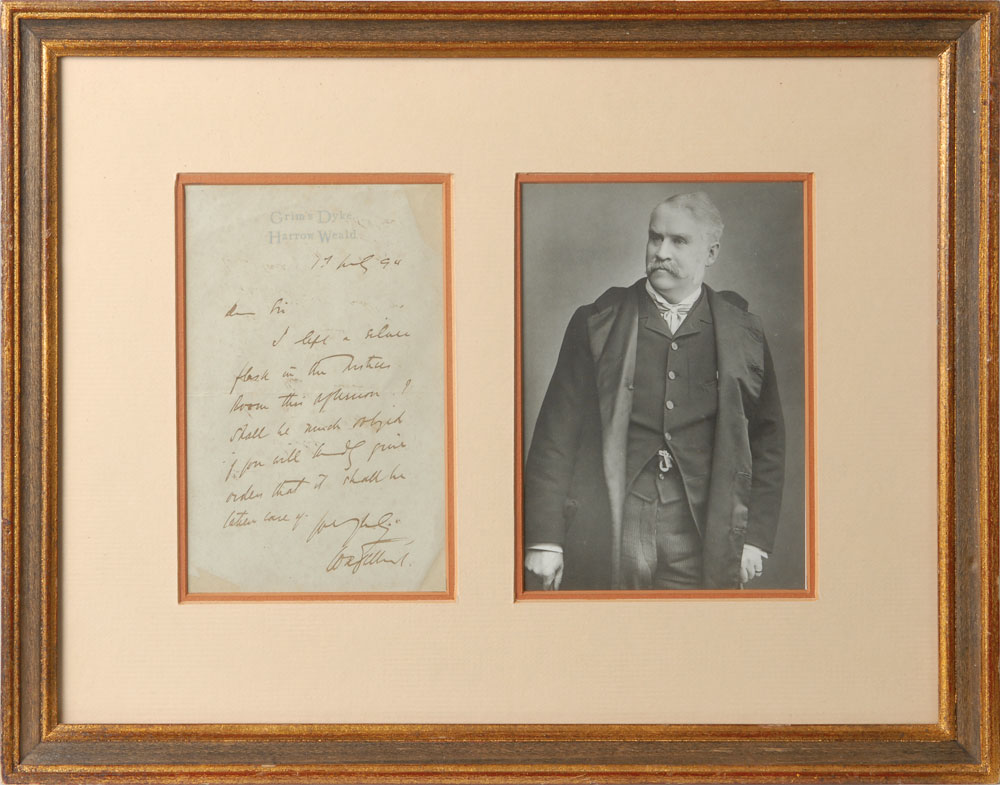 Grim's Dyke,
Harrow Weald.
94
Dear Sir
I left a silver
flask in the Justices
Room this afternoon. I
shall be much obliged
if you will kindly give
orders that it shall be
taken care of.
WSGilbert.